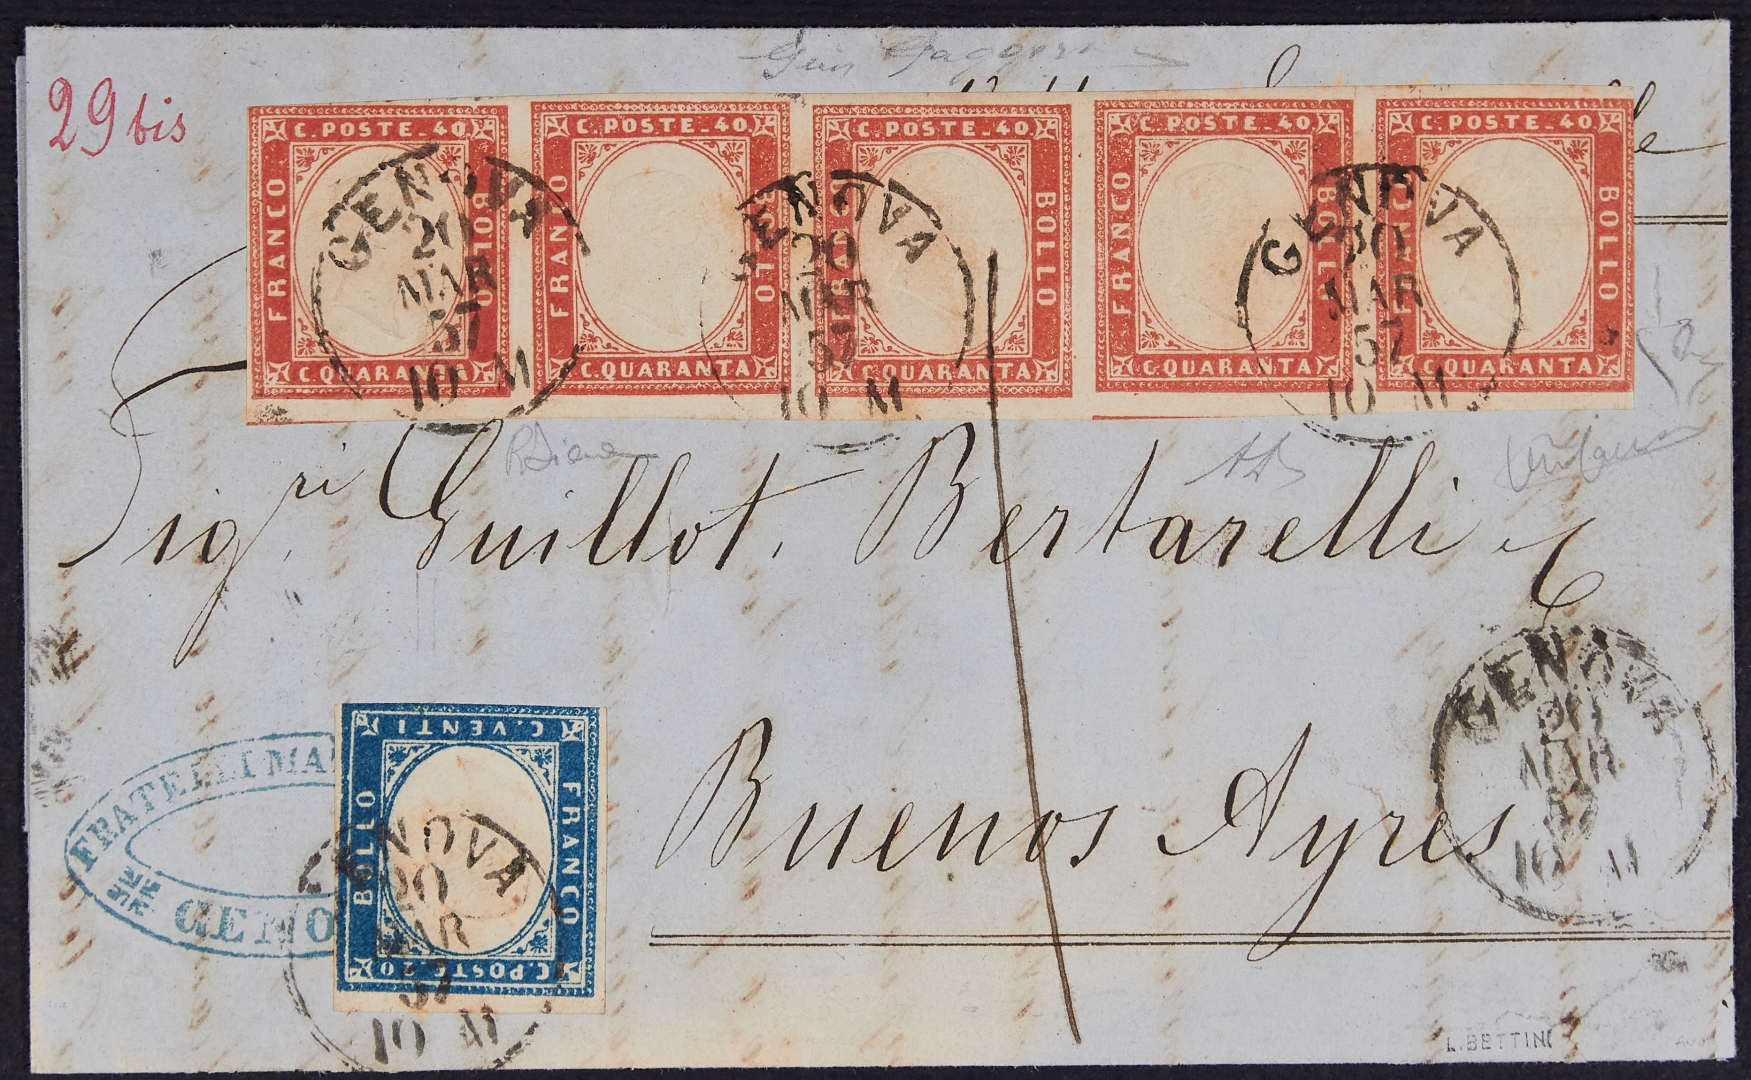 29 bis
C. POSTE. 40 C. POSTE. 40 C. POSTE. 40 C. POSTE. 40 C. POSTE. 40
FRANCO BOLLO FRANCO BOLLO FRANCO BOLLO FRANCO BOLLO FRANCO BOLLO
C. QUARANTA C. QUARANTA C. QUARANTA C. QUARANTA C. QUARANTA
GENOVA
20
MAR
57
10 M
GENOVA
20
MAR
57
10 M
GENOVA
20
MAR
57
10 M
RDiena
Sigri Guillot, Bertarelli e C
Buenos Ayres
GENOVA
20
MAR
57
10 M
FRATELLI MA
GENO
C. POSTE. 20
FRANCO BOLLO
C. VENTI
GENOVA
20
MAR
57
10 M
L. BETTINI